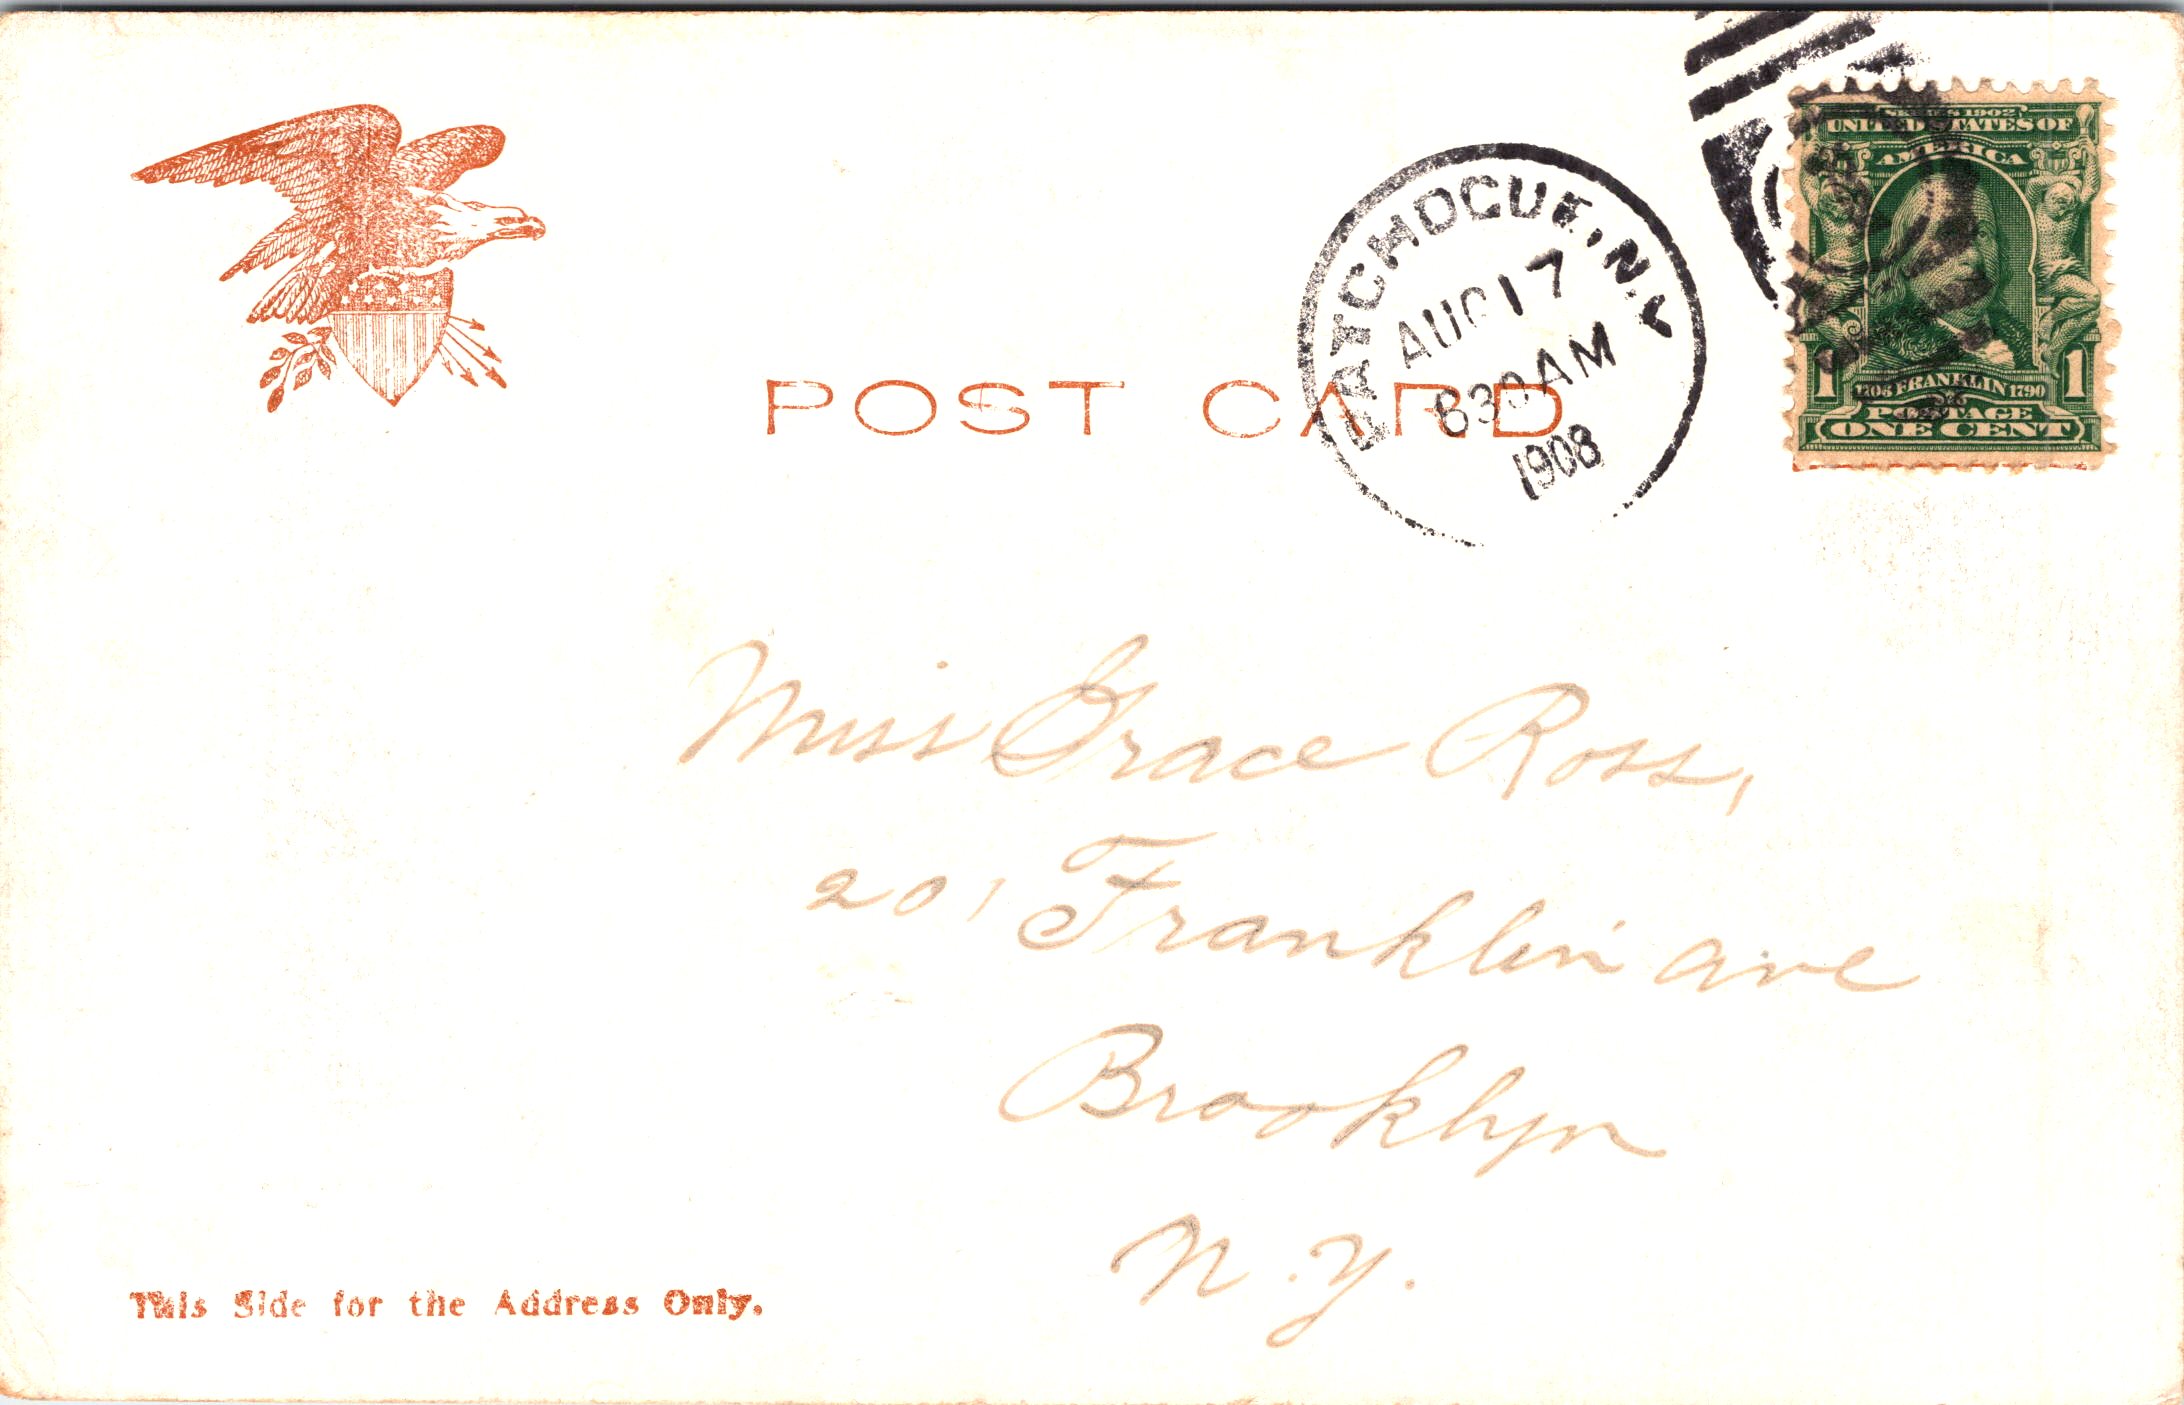 POST CARD
PATCHOGUE, N.Y.
AUG 17
630 AM
1908
SERIES 1902
UNITED STATES OF
AMERICA
1706 FRANKLIN 1790
1 1
POSTAGE
ONE CENT
Miss Grace Ross,
201 Franklin ave
Brooklyn
N.Y.
This Side for the Address Only.